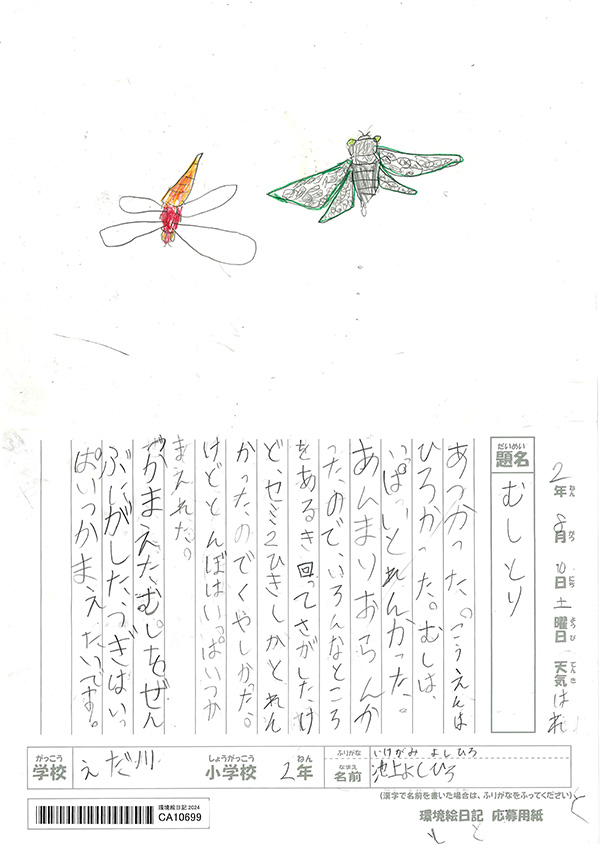 2年 8月 10日 土曜日 天気 はれ
ねん がつ にち ようび てんき
だいめい
題名
むしとり
あつかった。こうえんは
ひろかった。むしは、
いっぱいとれんかった。
あんまりおらんか
ったので、いろんなところ
をあるき回ってさがしたけ
ど、セミ2ひきしかとれん
かったのでくやしかった。
けどとんぼはいっぱいつか
まえれた。
つかまえたむしをぜん
ぶにがした。つぎはいっ
ぱいつかまえたいです。
がっこう
学校
えだ川
しょうがっこう
小学校
2
ねん
年
ふりがな
いけがみ よしひろ
なまえ
名前
池上よしひろ
(漢字で名前を書いた場合は、ふりがなをふってください)
環境絵日記 応募用紙
環境絵日記2024
CA10699